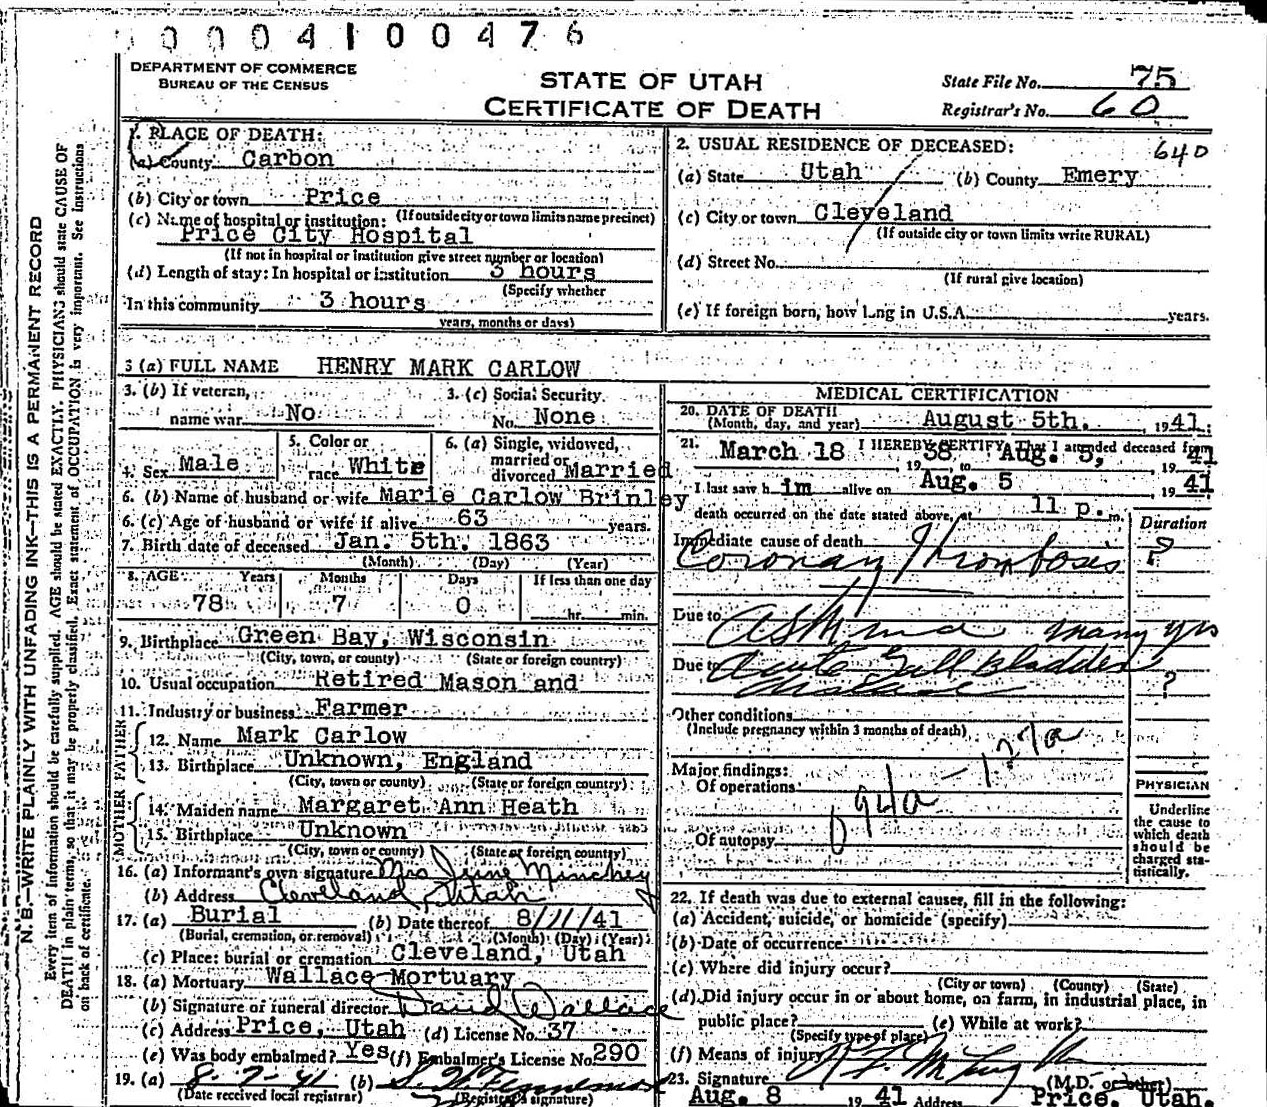 0004100476
DEPARTMENT OF COMMERCE
BUREAU OF THE CENSUS
STATE OF UTAH
CERTIFICATE OF DEATH
State File No. 75
Registrar's No. 60
1. PLACE OF DEATH:
(a) County Carbon
(b) City or town Price
(c) Name of hospital or institution: (If outside city or town limits name precinct)
Price City Hospital
(If not in hospital or institution give street number or location)
(d) Length of stay: In hospital or institution 3 hours
(Specify whether
In this community 3 hours
years, months or days)
2. USUAL RESIDENCE OF DECEASED: 640
(a) State Utah (b) County Emery
(c) City or town Cleveland
(If outside city or town limits write RURAL)
(d) Street No.
(If rural give location)
(e) If foreign born, how long in U.S.A. years.
3 (a) FULL NAME HENRY MARK CARLOW
3. (b) If veteran, name war No
3. (c) Social Security No. None
4. Sex Male
5. Color or race White
6. (a) Single, widowed, married or divorced Married
6. (b) Name of husband or wife Marie Carlow Brinley
6. (c) Age of husband or wife if alive 63 years.
7. Birth date of deceased Jan. 5th. 1863
(Month) (Day) (Year)
8. AGE: Years Months Days If less than one day
78 7 0 hr. min.
9. Birthplace Green Bay, Wisconsin
(City, town, or county) (State or foreign country)
10. Usual occupation Retired Mason and
11. Industry or business Farmer
FATHER
12. Name Mark Carlow
13. Birthplace Unknown, England
(City, town or county) (State or foreign country)
MOTHER
14. Maiden name Margaret Ann Heath
15. Birthplace Unknown
(City, town or county) (State or foreign country)
16. (a) Informant's own signature Mrs June Minchey
(b) Address Cleveland, Utah
17. (a) Burial (b) Date thereof 8/11/41
(Burial, cremation, or removal) (Month) (Day) (Year)
(c) Place: burial or cremation Cleveland, Utah
18. (a) Mortuary Wallace Mortuary
(b) Signature of funeral director David Wallace
(c) Address Price, Utah (d) License No. 37
(e) Was body embalmed? Yes (f) Embalmer's License No. 290
19. (a) 8-7-41 (b)
(Date received local registrar) (Registrar's signature)
MEDICAL CERTIFICATION
20. DATE OF DEATH
(Month, day, and year) August 5th. 1941.
21. I HEREBY CERTIFY That I attended deceased from
March 18 1938, to Aug. 5, 1941
I last saw him alive on Aug. 5 1941
death occurred on the date stated above, at 11 p. m.
Duration
Immediate cause of death
Coronary Thrombosis ?
Due to Asthma many yrs
Due to Acute Gall Bladder ?
Other conditions
(Include pregnancy within 3 months of death)
Major findings:
Of operations
094a - 127a
Of autopsy
PHYSICIAN
Underline
the cause to
which death
should be
charged sta-
tistically.
22. If death was due to external causes, fill in the following:
(a) Accident, suicide, or homicide (specify)
(b) Date of occurrence
(c) Where did injury occur?
(City or town) (County) (State)
(d) Did injury occur in or about home, on farm, in industrial place, in
public place? (e) While at work?
(Specify type of place)
(f) Means of injury
23. Signature (M.D. or other)
Aug. 8 1941 Address Price, Utah.
N. B.—WRITE PLAINLY WITH UNFADING INK—THIS IS A PERMANENT RECORD
Every item of information should be carefully supplied. AGE should be stated EXACTLY. PHYSICIANS should state CAUSE OF
DEATH in plain terms, so that it may be properly classified. Exact statement of OCCUPATION is very important. See instructions
on back of certificate.